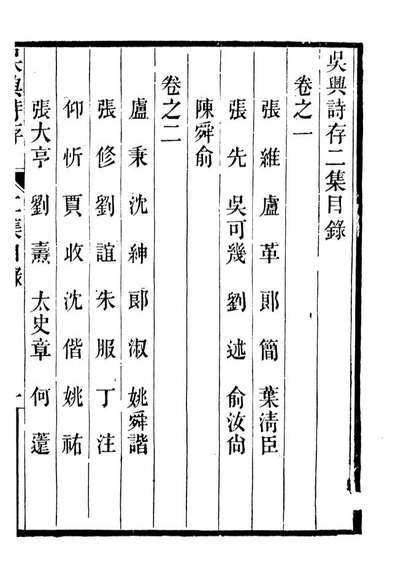 吳興詩存二集目錄
卷之一
張維 盧革 郞簡 葉淸臣
張先 吳可幾 劉述 俞汝尙
陳舜俞
卷之二
盧秉 沈紳 郞淑 姚舜諧
張修 劉誼 朱服 丁注
仰忻 賈收 沈偕 姚祐
張大亨 劉燾 太史章 何薳
吳興詩存 二集目錄 一